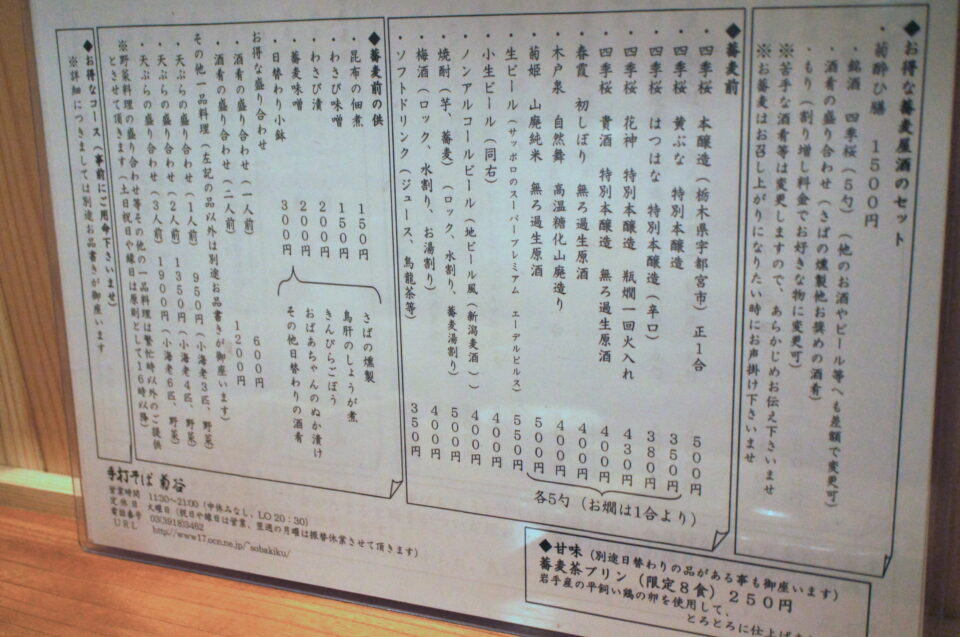 ◆お得な蕎麦屋酒のセット
・菊酔ひ膳 1500円
・銘酒 四季桜(5勺) (他のお酒やビール等へも差額で変更可)
・酒肴の盛り合わせ(さばの燻製他お奨めの酒肴)
・もり(割り増し料金でお好きな物に変更可)
※苦手な酒肴等は変更しますので、あらかじめお伝え下さいませ
※お蕎麦はお召し上がりになりたい時にお声掛け下さいませ
◆蕎麦前
・四季桜 本醸造(栃木県宇都宮市)正1合 500円
・四季桜 黄ぶな 特別本醸造 350円
・四季桜 はつはな 特別本醸造(辛口) 380円
・四季桜 花神 特別本醸造 瓶燗一回火入れ 430円
・四季桜 貴酒 特別本醸造 無ろ過生原酒 400円
・春霞 初しぼり 無ろ過生原酒 400円
・木戸泉 自然舞 高温糖化山廃造り 400円
・菊姫 山廃純米 無ろ過生原酒 500円
各5勺(お燗は1合より)
・生ビール(サッポロのスーパープレミアム エーデルピルス) 550円
・小生ビール(同右) 400円
・ノンアルコールビール(地ビール風(新潟麦酒)) 400円
・焼酎(芋、蕎麦)(ロック、水割り、蕎麦湯割り) 500円
・梅酒(ロック、水割り、お湯割り) 400円
・ソフトドリンク(ジュース、烏龍茶等) 350円
◆蕎麦前の供
・昆布の佃煮 150円
・わさび味噌 150円
・わさび漬 200円
・蕎麦味噌 200円
・日替わり小鉢 300円
さばの燻製
鳥肝のしょうが煮
きんぴらごぼう
おばあちゃんのぬか漬け
その他日替わりの酒肴
お得な盛り合わせ
・酒肴の盛り合わせ(一人前) 600円
・酒肴の盛り合わせ(二人前) 1200円
その他一品料理(左記の品以外は別途お品書きが御座います)
・天ぷらの盛り合わせ(1人前) 950円(小海老3匹、野菜)
・天ぷらの盛り合わせ(2人前) 1350円(小海老4匹、野菜)
・天ぷらの盛り合わせ(3人前) 1900円(小海老6匹、野菜)
※野菜料理の盛り合わせ等その他の一品料理は繁忙時以外のご提供
とさせて頂きます(土日祝日や縁日は原則として16時以降)
◆お得なコース(事前にご用命下さいませ)
※詳細につきましては別途お品書きが御座います
手打そば 菊谷
営業時間 11:30~21:00(中休みなし、LO 20:30)
定休日 火曜日(祝日や縁日は営業、翌週の月曜は振替休業させて頂きます)
電話番号 03(3918)3462
URL http://www17.ocn.ne.jp/~sobakiku/
◆甘味(別途日替わりの品がある事も御座います)
蕎麦茶プリン(限定8食)250円
岩手産の平飼い鶏の卵を使用して、
とろとろに仕上げ